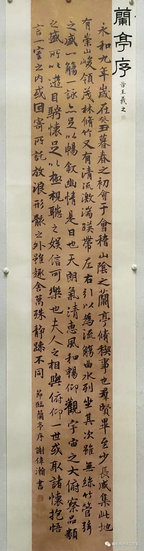 蘭亭序
王羲之
永和九年歲在癸丑暮春之初會于會稽山陰之蘭亭脩稧事也羣賢畢至少長咸集此地
有崇山峻領茂林脩竹又有清流激湍暎帶左右引以為流觴曲水列坐其次雖無絲竹管弦
之盛一觴一詠亦足以暢敘幽情是日也天朗氣清惠風和暢仰觀宇宙之大俯察品類
之盛所以遊目騁懷足以極視聽之娛信可樂也夫人之相與俯仰一世或取諸懷抱悟
言一室之內或因寄所託放浪形骸之外雖趣舍萬殊靜躁不同 節臨蘭亭序 謝偉瀚書